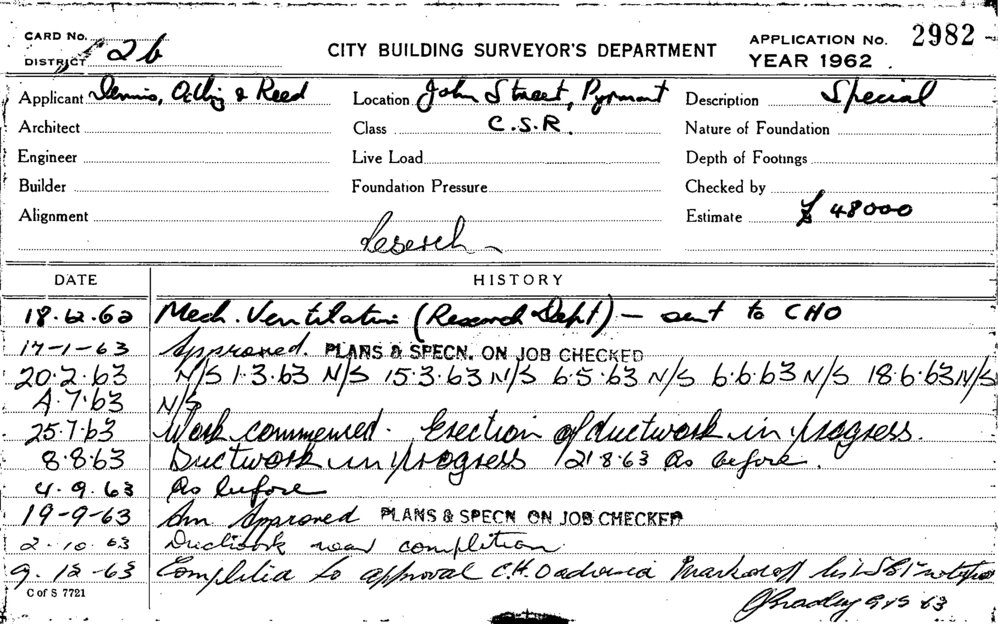 CARD No.
DISTRICT 26
CITY BUILDING SURVEYOR'S DEPARTMENT
APPLICATION No. 2982
YEAR 1962
Applicant Dennis, & Reed
Location John Street, Pyrmont
Description Special
Architect
Class C.S.R.
Nature of Foundation
Engineer
Live Load
Depth of Footings
Builder
Foundation Pressure
Checked by
Alignment
Estimate £ 48000
Research
DATE HISTORY
18.12.62 Mech. Ventilation (Research Dept) – sent to CHO
17-1-63 Approved. PLANS & SPECN. ON JOB CHECKED
20.2.63 N/S 1.3.63 N/S 15.3.63 N/S 6.5.63 N/S 6.6.63 N/S 18.6.63 N/S
4.7.63 N/S
25.7.63 Work commenced. Erection of ductwork in progress.
8.8.63 Ductwork in progress 21.8.63 As before.
4.9.63 As before
19-9-63 Am. Approved PLANS & SPECN ON JOB CHECKED
2.10.63 Ductwork near completion.
9.12-63 Completed to approval C.H.O advised Marked off list
Bradley 9.12.63
C of S 7721